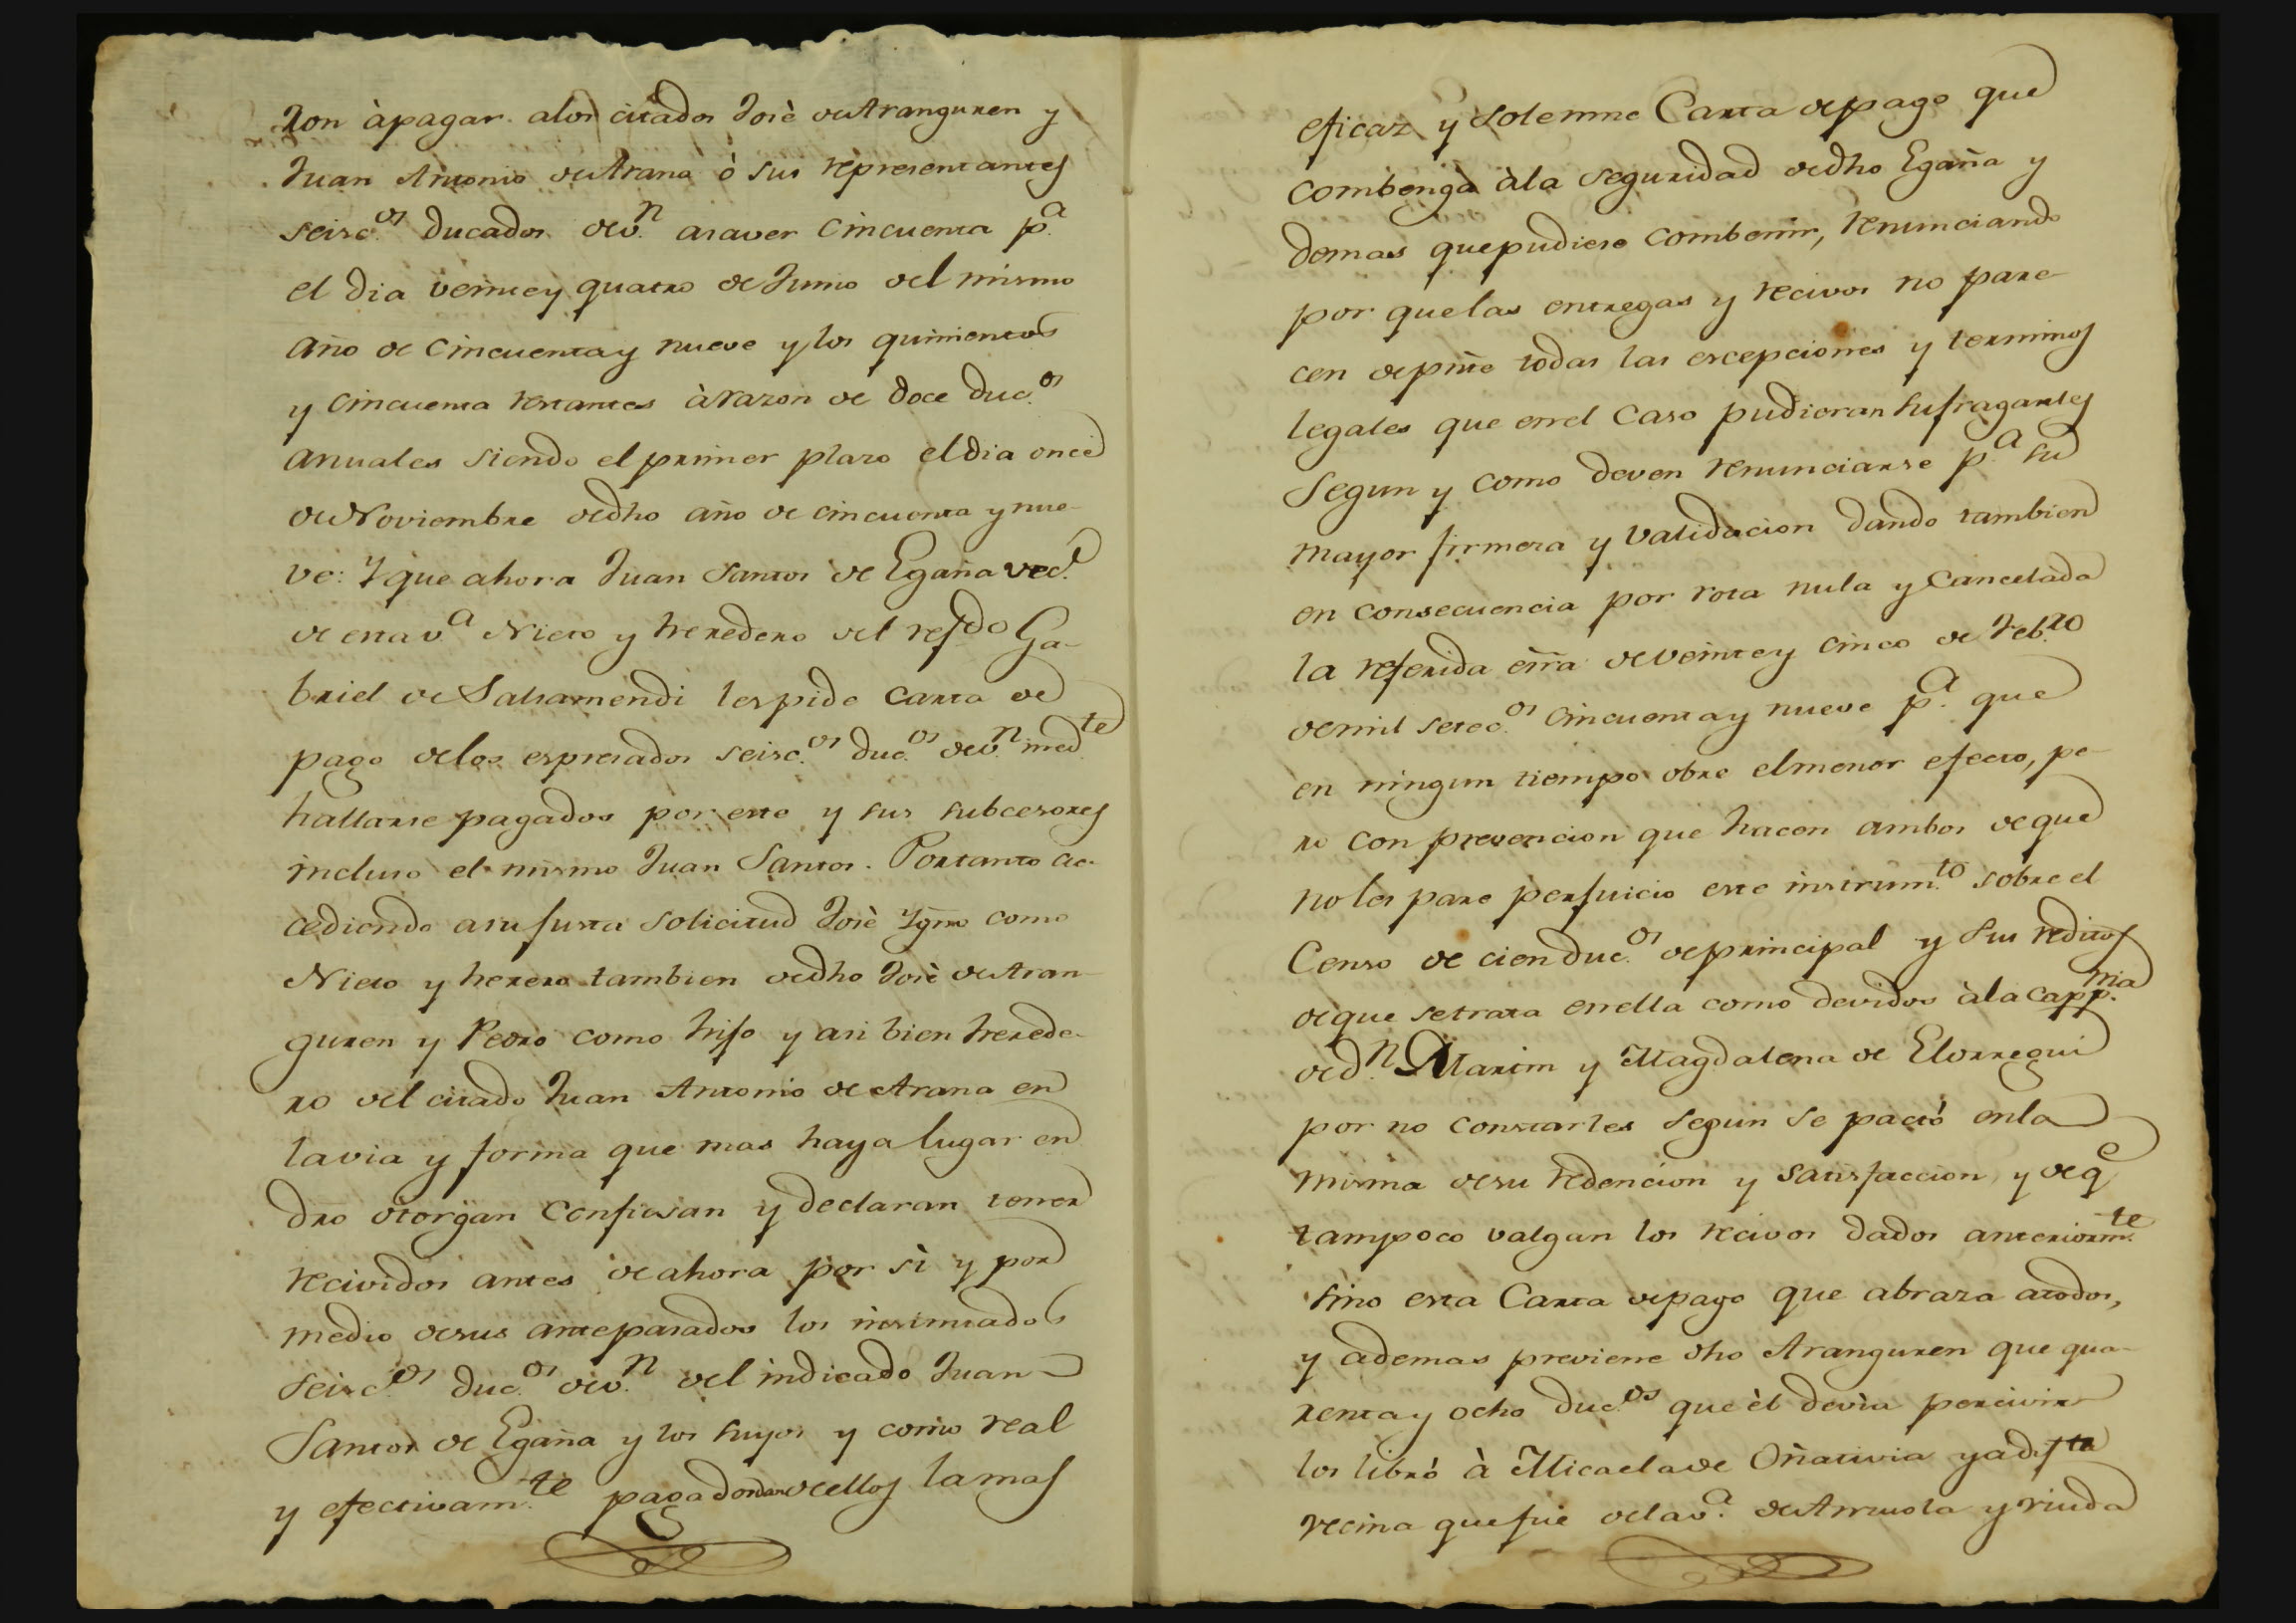 ron à pagar alos citados Josè de Aranguren y
Juan Antonio de Arana ò sus representantes
seisc.os ducados de v.n asaver cincuenta p.a
el dia veinte y quatro de Junio del mismo
año de cincuenta y nueve y los quinientos
y cincuenta restantes à razon de doce duc.os
anuales siendo el primer plazo el dia once
de Noviembre de dho año de cincuenta y nue-
ve: Y que ahora Juan Santos de Egaña vec.o
de esta v.a Nieto y heredero del refdo Ga-
briel de Salsamendi les pide carta de
pago delos espresados seisc.os duc.os de v.n med.te
hallarse pagados por este y sus subcesores
incluso el mismo Juan Santos. Portanto ac-
cediendo asu justa solicitud Josè Ygno como
Nieto y herero tambien de dho Josè de Aran-
guren y Pedro como hijo y asi bien herede-
ro del citado Juan Antonio de Arana en
la via y forma que mas haya lugar en
dro otorgan confiesan y declaran tener
recividos antes de ahora por sì y por
medio de sus antepasados los insinuados
seisc.os duc.os de v.n del indicado Juan
Santos de Egaña y los suyos y como real
y efectivam.te pagados dan de ellos la mas
eficaz y solemne Carta de pago que
combenga àla seguridad de dho Egaña y
demas que pudiese combenir, renunciando
por que las entregas y recivos no pare-
cen de pnte todas las escepciones y terminos
legales que en el caso pudieran sufragarles
segun y como deven renunciarse p.a su
mayor firmeza y validacion dando tambien
en consecuencia por rota nula y cancelada
la referida esra de veinte y cinco de Feb.ro
de mil setec.os cincuenta y nueve p.a que
en ningun tiempo obre el menor efecto, pe-
ro con prevencion que hacen ambos de que
no les pare perjuicio este instrum.to sobre el
Censo de cien duc.os de principal y sus reditos
de que se trata en ella como devidos àla capp.nia
de d.n Martin y Magdalena de Elorregui
por no constarles segun se pactó en la
misma de su redencion y satisfaccion, y de q.e
tampoco valgan los recivos dados anteriorm.te
sino esta Carta de pago que abraza atodos,
y ademas previene dho Aranguren que qua-
renta y ocho duc.os que èl devìa percivir
los librò à Micaela de Oñativia ya dif.ta
vecina que fue de la v.a de Arruola y viuda